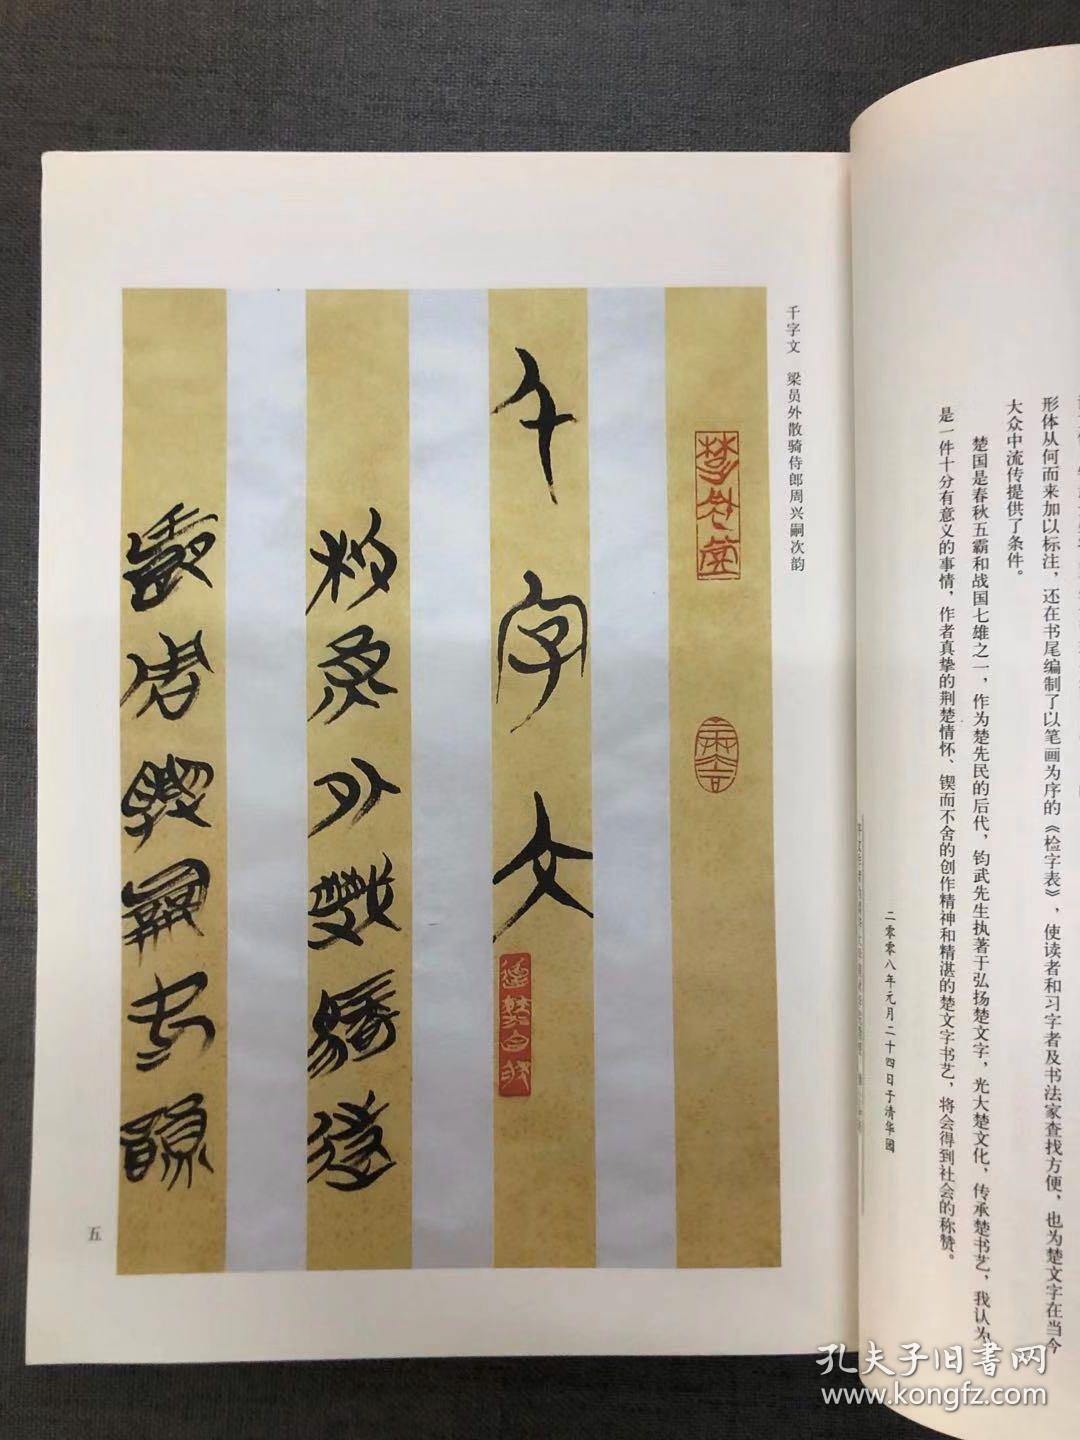 形体从何而来加以标注，还在书尾编制了以笔画为序的《检字表》，使读者和习字者及书法家查找方便，也为楚文字在当今
大众中流传提供了条件。
楚国是春秋五霸和战国七雄之一，作为楚先民的后代，钧武先生执著于弘扬楚文字，光大楚文化，传承楚书艺，我认为
是一件十分有意义的事情，作者真挚的荆楚情怀、锲而不舍的创作精神和精湛的楚文字书艺，将会得到社会的称赞。
二零零八年元月二十四日于清华园
千字文　梁员外散骑侍郎周兴嗣次韵
千字文
梁员外散骑侍
郎周兴嗣次韵
五
孔夫子旧书网
www.kongfz.com